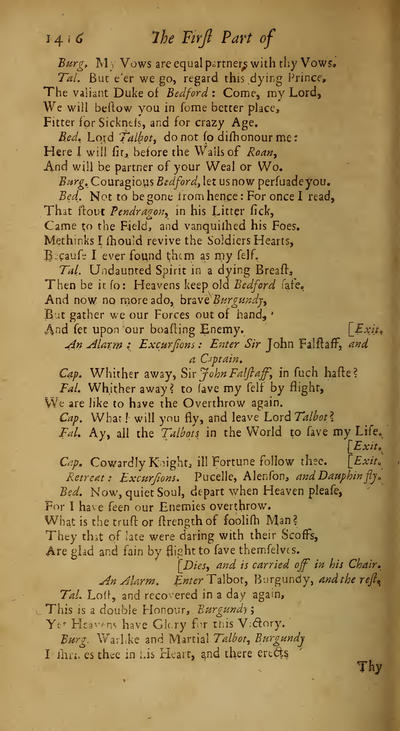 1416 The Firſt Part of
Burg. My Vows are equal partners with thy Vows.
Tal. But e'er we go, regard this dying Prince,
The valiant Duke of Bedford: Come, my Lord,
We will beſtow you in ſome better place,
Fitter for Sickneſs, and for crazy Age.
Bed. Lord Talbot, do not ſo diſhonour me:
Here I will ſit, before the Walls of Roan,
And will be partner of your Weal or Wo.
Burg. Couragious Bedford, let us now perſuade you.
Bed. Not to be gone from hence: For once I read,
That ſtout Pendragon, in his Litter ſick,
Came to the Field, and vanquiſhed his Foes.
Methinks I ſhou'd revive the Soldiers Hearts,
Becauſe I ever found them as my ſelf.
Tal. Undaunted Spirit in a dying Breaſt,
Then be it ſo: Heavens keep old Bedford ſafe.
And now no more ado, brave Burgundy,
But gather we our Forces out of hand,
And ſet upon our boaſting Enemy. [Exit.
An Alarm: Excurſions: Enter Sir John Falſtaff, and
a Captain.
Cap. Whither away, Sir John Falſtaff, in ſuch haſte?
Fal. Whither away? to ſave my ſelf by flight,
We are like to have the Overthrow again.
Cap. What! will you fly, and leave Lord Talbot?
Fal. Ay, all the Talbots in the World to ſave my Life.
[Exit.
Cap. Cowardly Knight, ill Fortune follow thee. [Exit.
Retreat: Excurſions. Pucelle, Alenſon, and Dauphin fly.
Bed. Now, quiet Soul, depart when Heaven pleaſe,
For I have ſeen our Enemies overthrow.
What is the truſt or ſtrength of fooliſh Man?
They that of late were daring with their Scoffs,
Are glad and fain by flight to ſave themſelves.
[Dies, and is carried off in his Chair.
An Alarm. Enter Talbot, Burgundy, and the reſt.
Tal. Loſt, and recovered in a day again,
This is a double Honour, Burgundy;
Yet Heavens have Glory for this Victory.
Burg. Warlike and Martial Talbot, Burgundy
Inſhrines thee in his Heart, and there erects
Thy